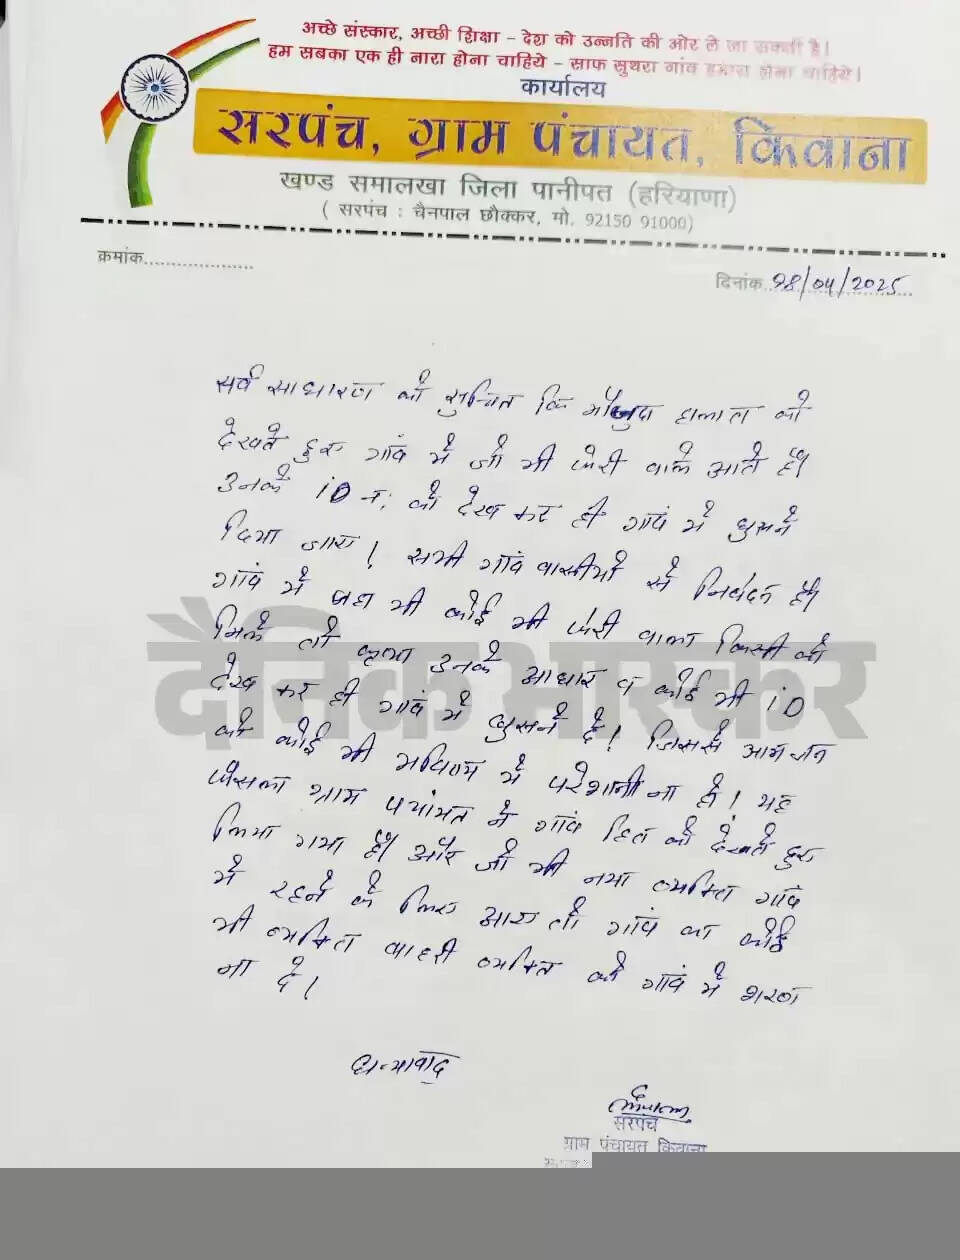 अच्छे संस्कार, अच्छी शिक्षा - देश को उन्नति की ओर ले जा सकती है।
हम सबका एक ही नारा होना चाहिये - साफ सुथरा गांव हमारा होना चाहिये।
कार्यालय
सरपंच, ग्राम पंचायत, किवाना
खण्ड समालखा जिला पानीपत (हरियाणा)
( सरपंच : चैनपाल छौक्कर, मो. 92150 91000)
क्रमांक....................
दिनांक 28/04/2025
सर्व साधारण को सुचित कि मौजुदा हालात को
देखते हुए गांव में जो भी फेरी वाले आते हैं।
उनके iD न. को देख कर ही गांव में घुसने
दिया जाए। सभी गांव वासीयो से निवेदन है।
गांव में जहा भी कोई भी फेरी वाला किसी को
मिले तो कृप्या उनके आधार व कोई भी iD
देख कर ही गांव में घुसने दे। जिससे आम जन
को कोई भी भविष्य में परेशानी ना हो। यह
फैसला ग्राम पचांयत ने गांव हित को देखते हुए
लिया गया है। और जो भी नया व्यक्ति गांव
में रहने के लिए आए तो गांव का कोई
भी व्यक्ति बाहरी व्यक्ति को गांव में शरण
ना दे।
धन्यावाद
सरपंच
ग्राम पंचायत किवाना
दैनिक भास्कर